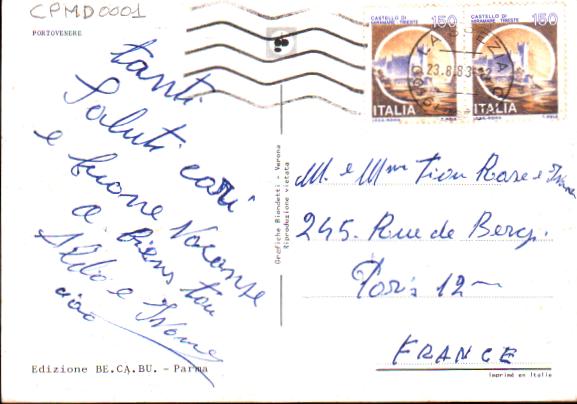 CPMD0001
PORTOVENERE
tanti
Saluti cari
e buone Vacanze
a Biens tou
Aldo e Ivonne
ciao
Edizione BE.CA.BU. - Parma
Grafiche Biondetti - Verona
Riproduzione vietata
CASTELLO DI MIRAMARE - TRIESTE 150
ITALIA
CASTELLO DI MIRAMARE - TRIESTE 150
ITALIA
23.8.83
M. e Mme Rose e
245. Rue de Bercy.
Paris 12
FRANCE
Imprimé en Italie